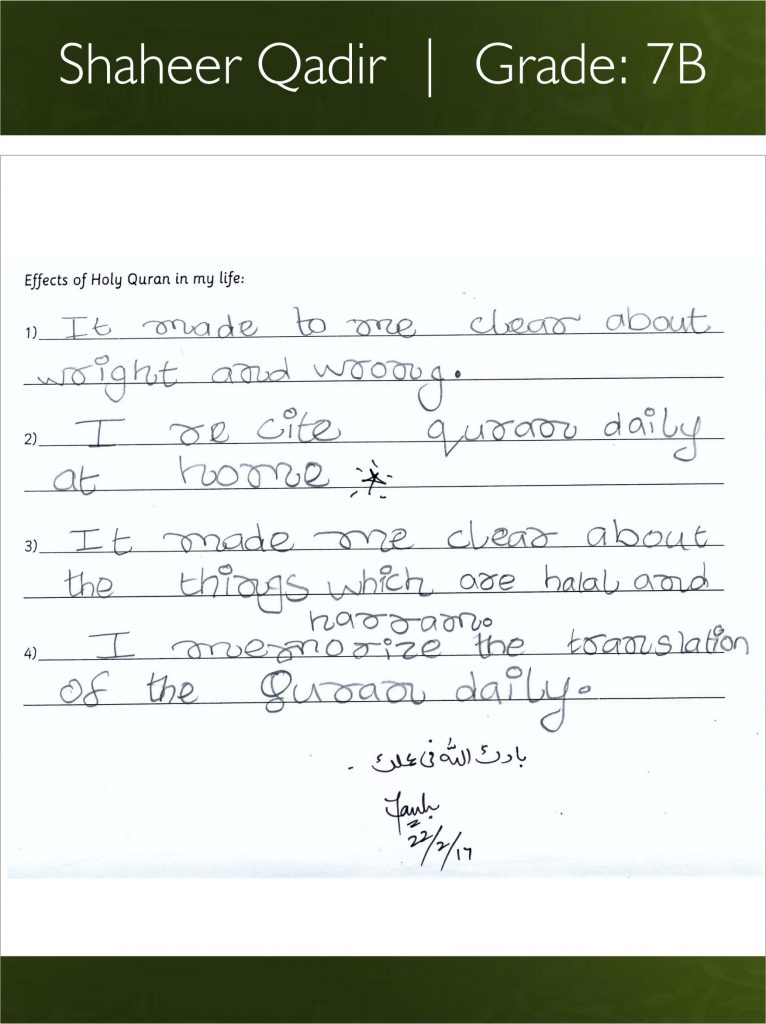 Shaheer Qadir | Grade: 7B
Effects of Holy Quran in my life:
1) It made to me clear about
wright and wrong.
2) I re cite quran daily
at home
3) It made me clear about
the things which are halal and
harram.
4) I memorize the translation
of the Quran daily.
بارك الله فى علمك -
22/2/17